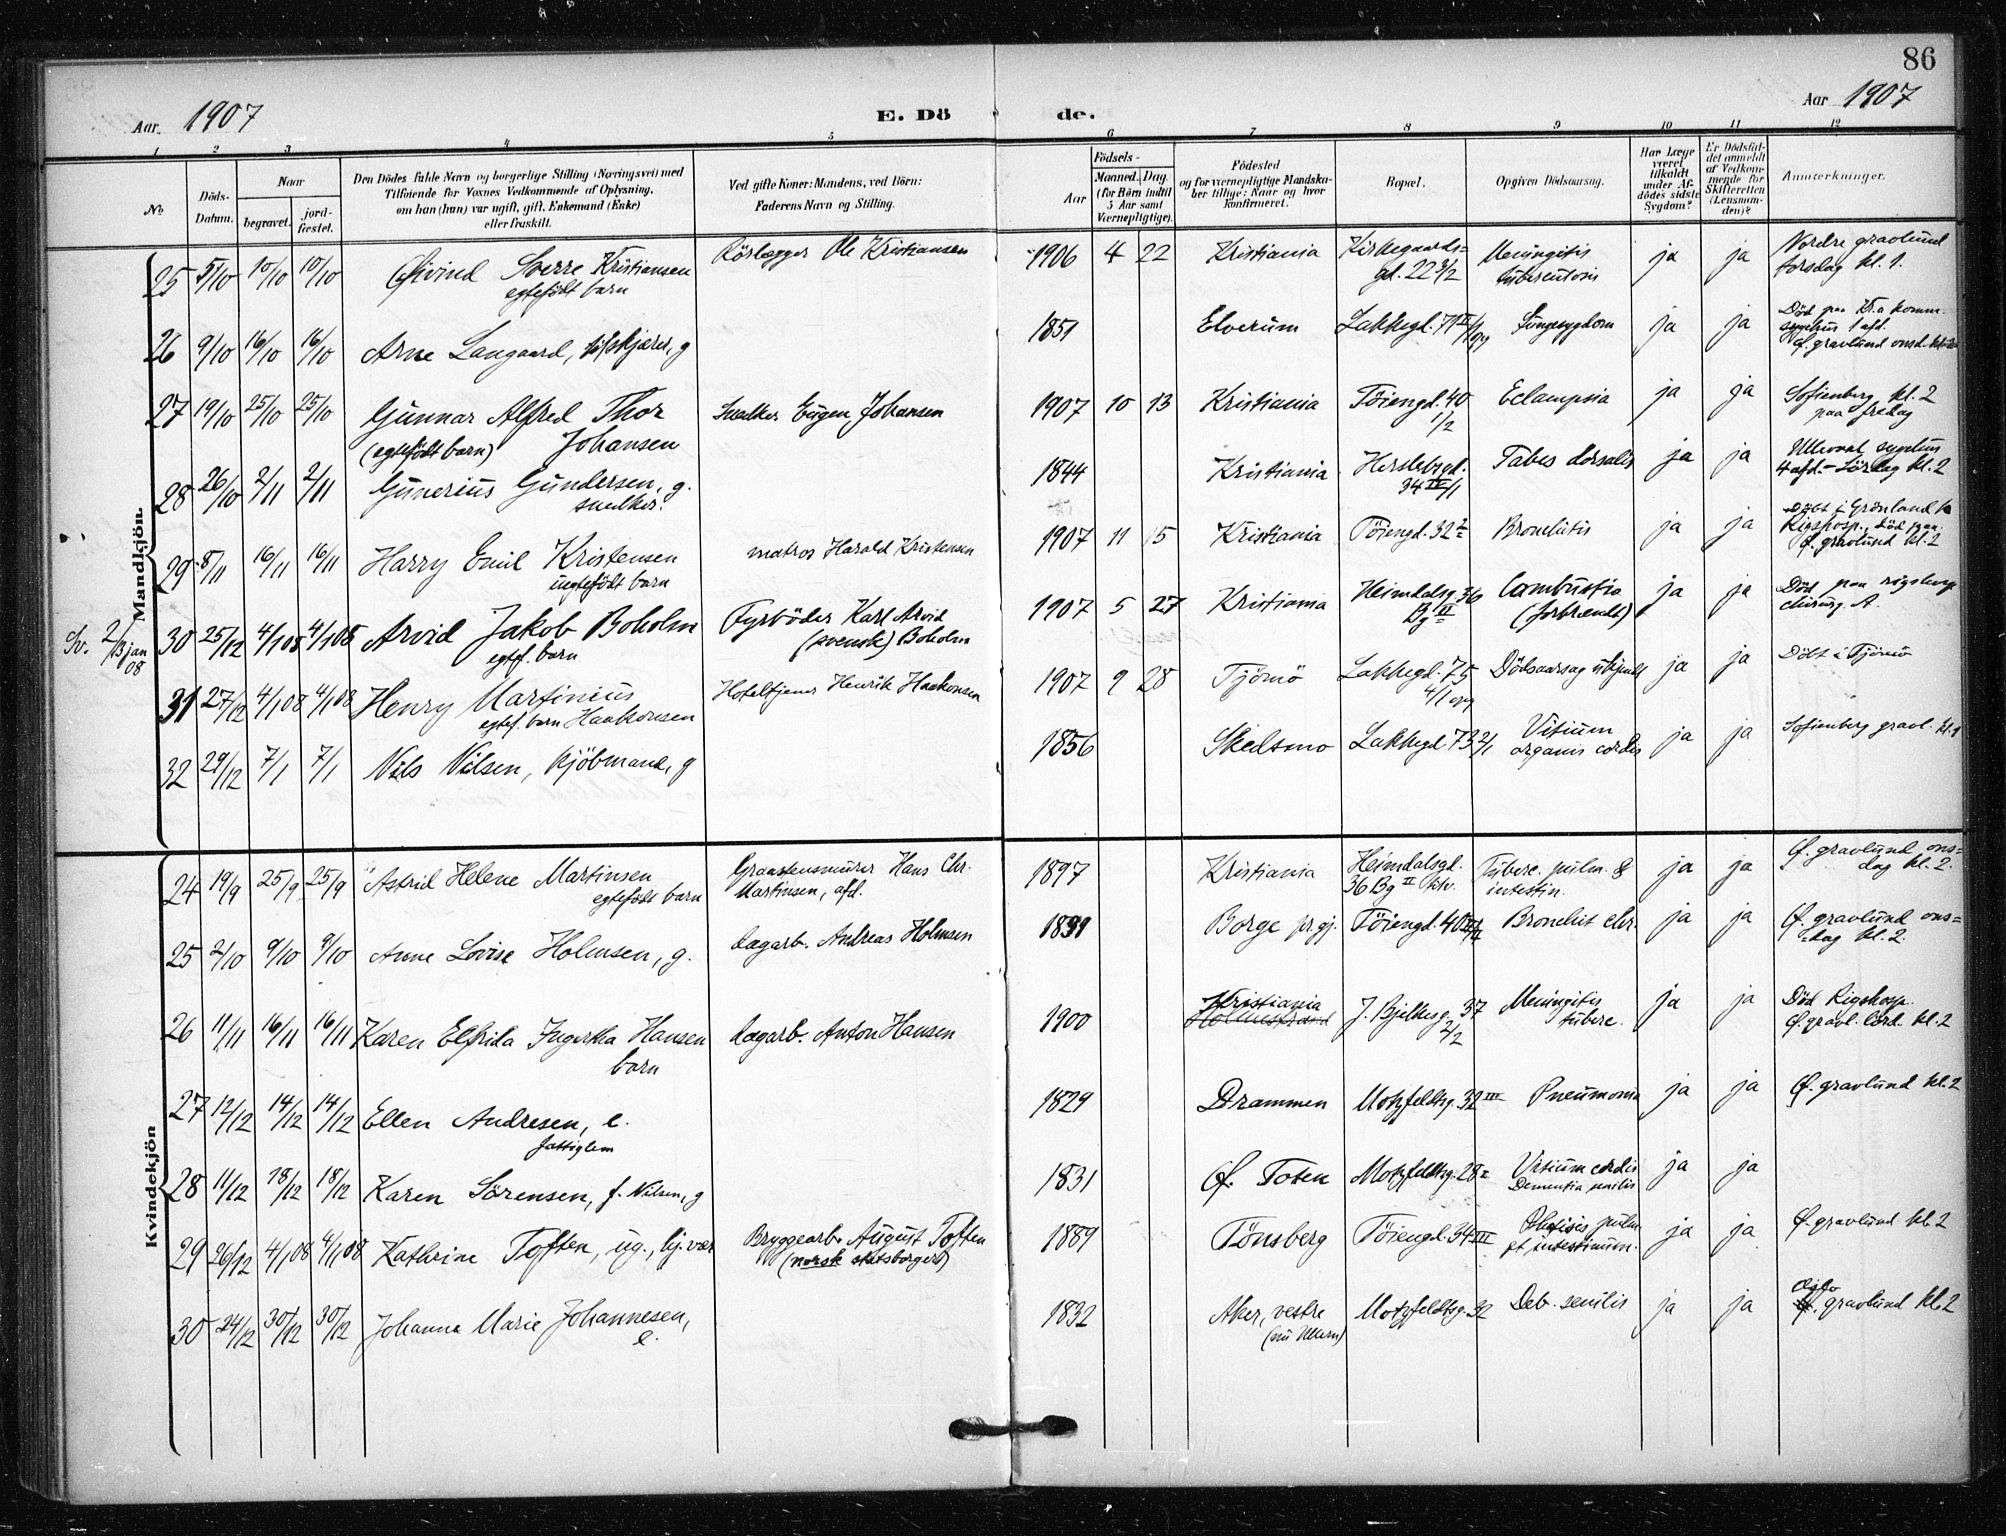 86
Aar 1907
E. Dö de.
Aar 1907
1 2 3 4 5 6 7 8 9 10 11 12
No
Döds-Datum.
Naar
begravet.
jord-fæstet.
Den Dödes fulde Navn og borgerlige Stilling (Næringsvei) med
Tilföiende for Voxnes Vedkommende af Oplysning,
om han (hun) var ugift, gift, Enkemand (Enke)
eller fraskilt.
Ved gifte Koner: Mandens, ved Börn:
Faderens Navn og Stilling.
Födsels-
Aar
Maaned. Dag.
(for Börn indtil
5 Aar samt
Værnepligtige).
Födested
og for værnepligtige Mandska-
ber tillige: Naar og hvor
konfirmeret.
Bopæl.
Opgiven Dödsaarsag.
Har Læge
været
tilkaldt
under Af-
dödes sidste
Sygdom?
Er Dödsfal-
det anmeldt
af Vedkom-
mende for
Skifteretten
(Lensman-
den)?
Anmærkninger.
Mandkjön.
25 5/10 10/10 10/10 Øivind Sverre Kristiansen Rörlægger Ole Kristiansen 1906 4 22 Kristiania Kirkegaards= Meningitis ja ja Nordre gravlund
egtefödt barn gd. 22 3/2 tuberculosis torsdag kl. 1.
26 9/10 16/10 16/10 Arne Langaard, g 1851 Elverum Lakkegd. 71 II/1 opg ja ja Død paa Kr.a komm.
sygehus 1 afd.
Ø. gravlund onsd.
27 19/10 25/10 25/10 Gunnar Alfred Thor Snedker Eugen Johansen 1907 10 13 Kristiania Töiengd. 40 Eclampsia ja ja Sofienberg kl. 2
(egtefödt barn) Johansen 1/2 paa fredag
28 26/10 2/11 2/11 Gunerius Gundersen, g. 1844 Kristiania Herslebsgd. Tabes dorsalis ja ja Ullevaal sygehus
snedker. 34 IV/1 4 afd. - Lördag kl. 2
29 8/11 16/11 16/11 Harry Emil Kristensen matros Harald Kristensen 1907 11 5 Kristiania Töiengd. 32 Bronchitis ja ja Döbt i Grönland k
uegtefödt barn Rigshosp., död paa
Ø. gravlund kl. 2
Sv. 2/3 jan 08
30 25/12 4/1 08 4/1 08 Arvid Jakob Boholm Fyrböder Karl Arvid 1907 5 27 Kristiania Heimdalsg 36 Combustio ja ja Död paa rigshosp
egtef. barn (svensk) Boholm Bg II (forbrændt) chirurg. A.
31 27/12 4/1 08 4/1 08 Henry Martinius Hoteltjener Henrik Haakonsen 1907 9 28 Tjömö Lakkegd. 75 Dödsaarsag ubekjendt ja ja Döbt i Tjömö
egtef. barn Haakonsen 4/1 opg
32 29/12 7/1 7/1 Nils Nilsen, kjöbmand, g 1856 Skedsmo Lakkegd 73 2/1 Vitium ja ja Sofienberg gravl. kl. 1
organis cordis
Kvindekjön
24 19/9 25/9 25/9 Astrid Helene Martinsen Graastensmurer Hans Chr. 1897 Kristiania Heimdalsgd. Tuberc. pulm. & ja ja Ø. gravlund ons=
egtefödt barn Martinsen, afd. 36 Bg II intestin. dag kl. 2.
25 2/10 9/10 9/10 Anne Lovise Holmsen, g. dagarb. Andreas Holmsen Borge pr.gj. Töiengd. 40 Bronchit chr. ja ja Ø. gravlund ons=
dag kl. 2.
26 11/11 16/11 16/11 Karen Elfrida Ingerka Hansen dagarb. Anton Hansen 1900 Kristiania J. Bjelkesg. 37 Meningitis ja ja Död Rigshosp.
barn Holmestrand 2/2 tuberc. Ø. gravl. lörd. kl. 2
27 12/12 14/12 14/12 Ellen Andresen, e. 1829 Drammen Motzfeldtsg. 32 III Pneumonia ja ja Ø. gravlund kl. 2
fattiglem
28 11/12 18/12 18/12 Karen Sörensen, f. Nilsen, g 1831 Ø. Toten Motzfeldtsg. 28 Vitium cordis ja ja
Dementia senilis
29 26/12 4/1 08 4/1 08 Kathrine Toften, ug., hj.vær Bryggearb. August Toften 1889 Tönsberg Töiengd. 34 III Phtisis pulm ja ja Ø. gravlund kl. 2
(norsk statsborger) et intestinum.
30 24/12 30/12 30/12 Johanna Marie Johannesen, 1832 Aker, vestre Motzfeldtsg. 32 Deb. senilis ja ja gravlund kl. 2
e. (nu Ullern)